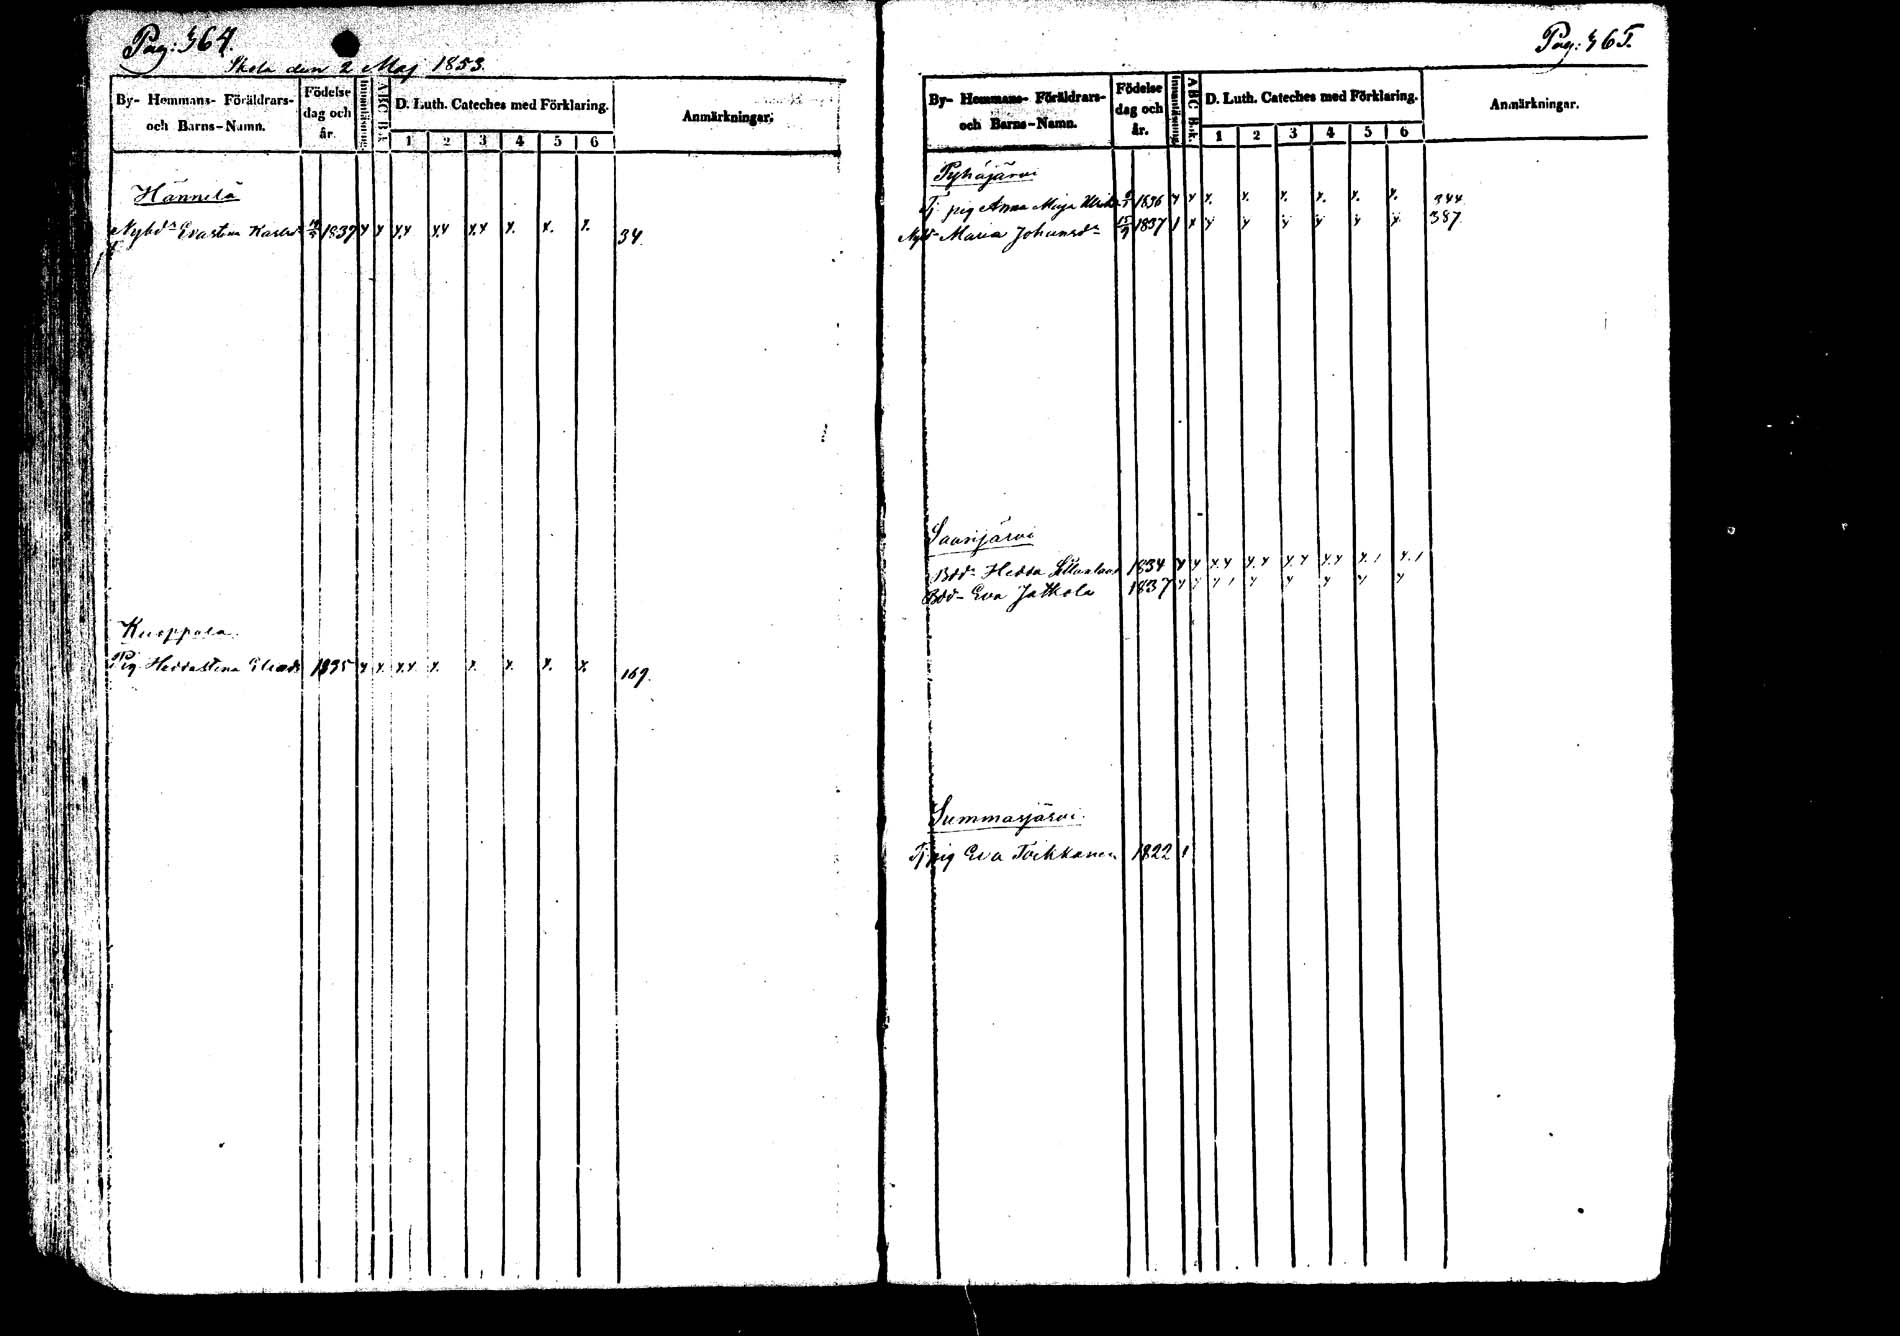 Pag: 364.
Skola den 2 Maj 1853.
By- Hemmans- Föräldrars- och Barns-Namn.
Födelse dag och år.
Innanläsning
ABC B.k
D. Luth. Cateches med Förklaring.
1 2 3 4 5 6
Anmärkningar.
Hännelä
Nybds Evastina Karlsd 1837 34.
Kuoppala
Pig Heddastina 1835 169.
Pag: 365.
By- Hemmans- Föräldrars- och Barns-Namn.
Födelse dag och år.
Innanläsning
ABC B.k.
D. Luth. Cateches med Förklaring.
1 2 3 4 5 6
Anmärkningar.
Pyhäjärvi
Tj pig Anna Maja 1836 344
Maria Johansdr 15/9 1837 387.
Saarijärvi
Hedda 1834
Eva Jatkola 1837
Summasjärvi
Tj pig Eva Toikkanen 1822